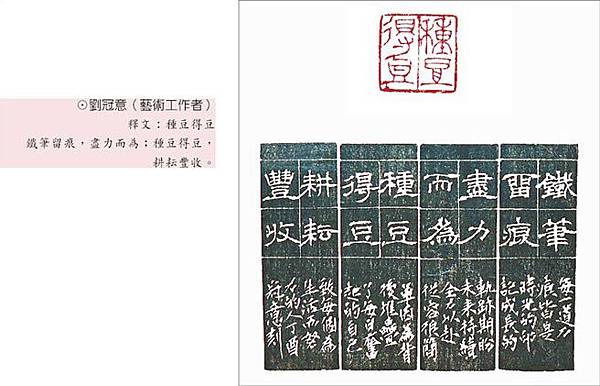 ⊙劉冠意（藝術工作者）
釋文：種豆得豆
鐵筆留痕，盡力而為；種豆得豆，
耕耘豐收。
種豆
得豆
鐵筆
留痕
每一道刀
痕皆是
時光的印
記成長的
盡力
而為
軌跡期盼
未來持續
全力以赴
從容很簡
種豆
得豆
單因為背
後堆疊
了每日奮
起的自己
耕耘
豐收
致每個為
生活而努
力的人丁酉
冠意刻